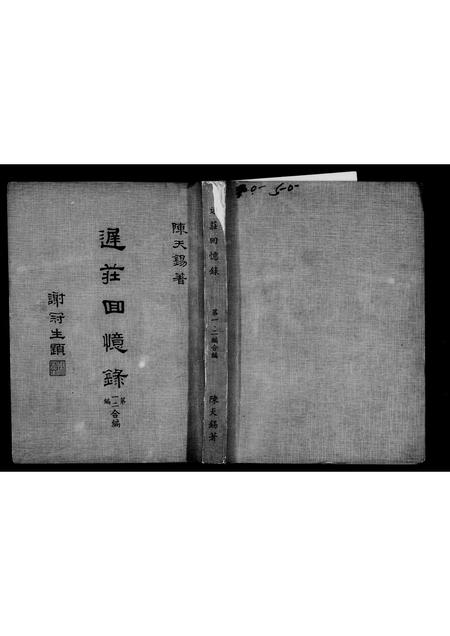 陳天錫著
遲莊回憶錄
第一二編合編
謝冠生題
莊回憶錄
第一·二編合編
陳天錫著